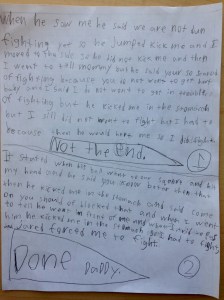 when he saw me he said we are not dun
fighting yet so he jumped kick me and I
moved to the side so he did not kick me and then
I went to tell mommy but he said your so scared
of fighting because you do not want to get hurt
baby and I said I do not want to get in trouble
of fighting but he kicked me in the stomach
but I still did not want to fight but I had to
because then he would hurt me so I
Not The End.
1
It started when his ball went to my
my hand and he said you know
then he kicked me in the stomach and said come
on you should of blocked that and when I went
to tell he went in front of me and
him he kicked me in the stomach so I had to fight
forced me to fight.
Done
Daddy.
2